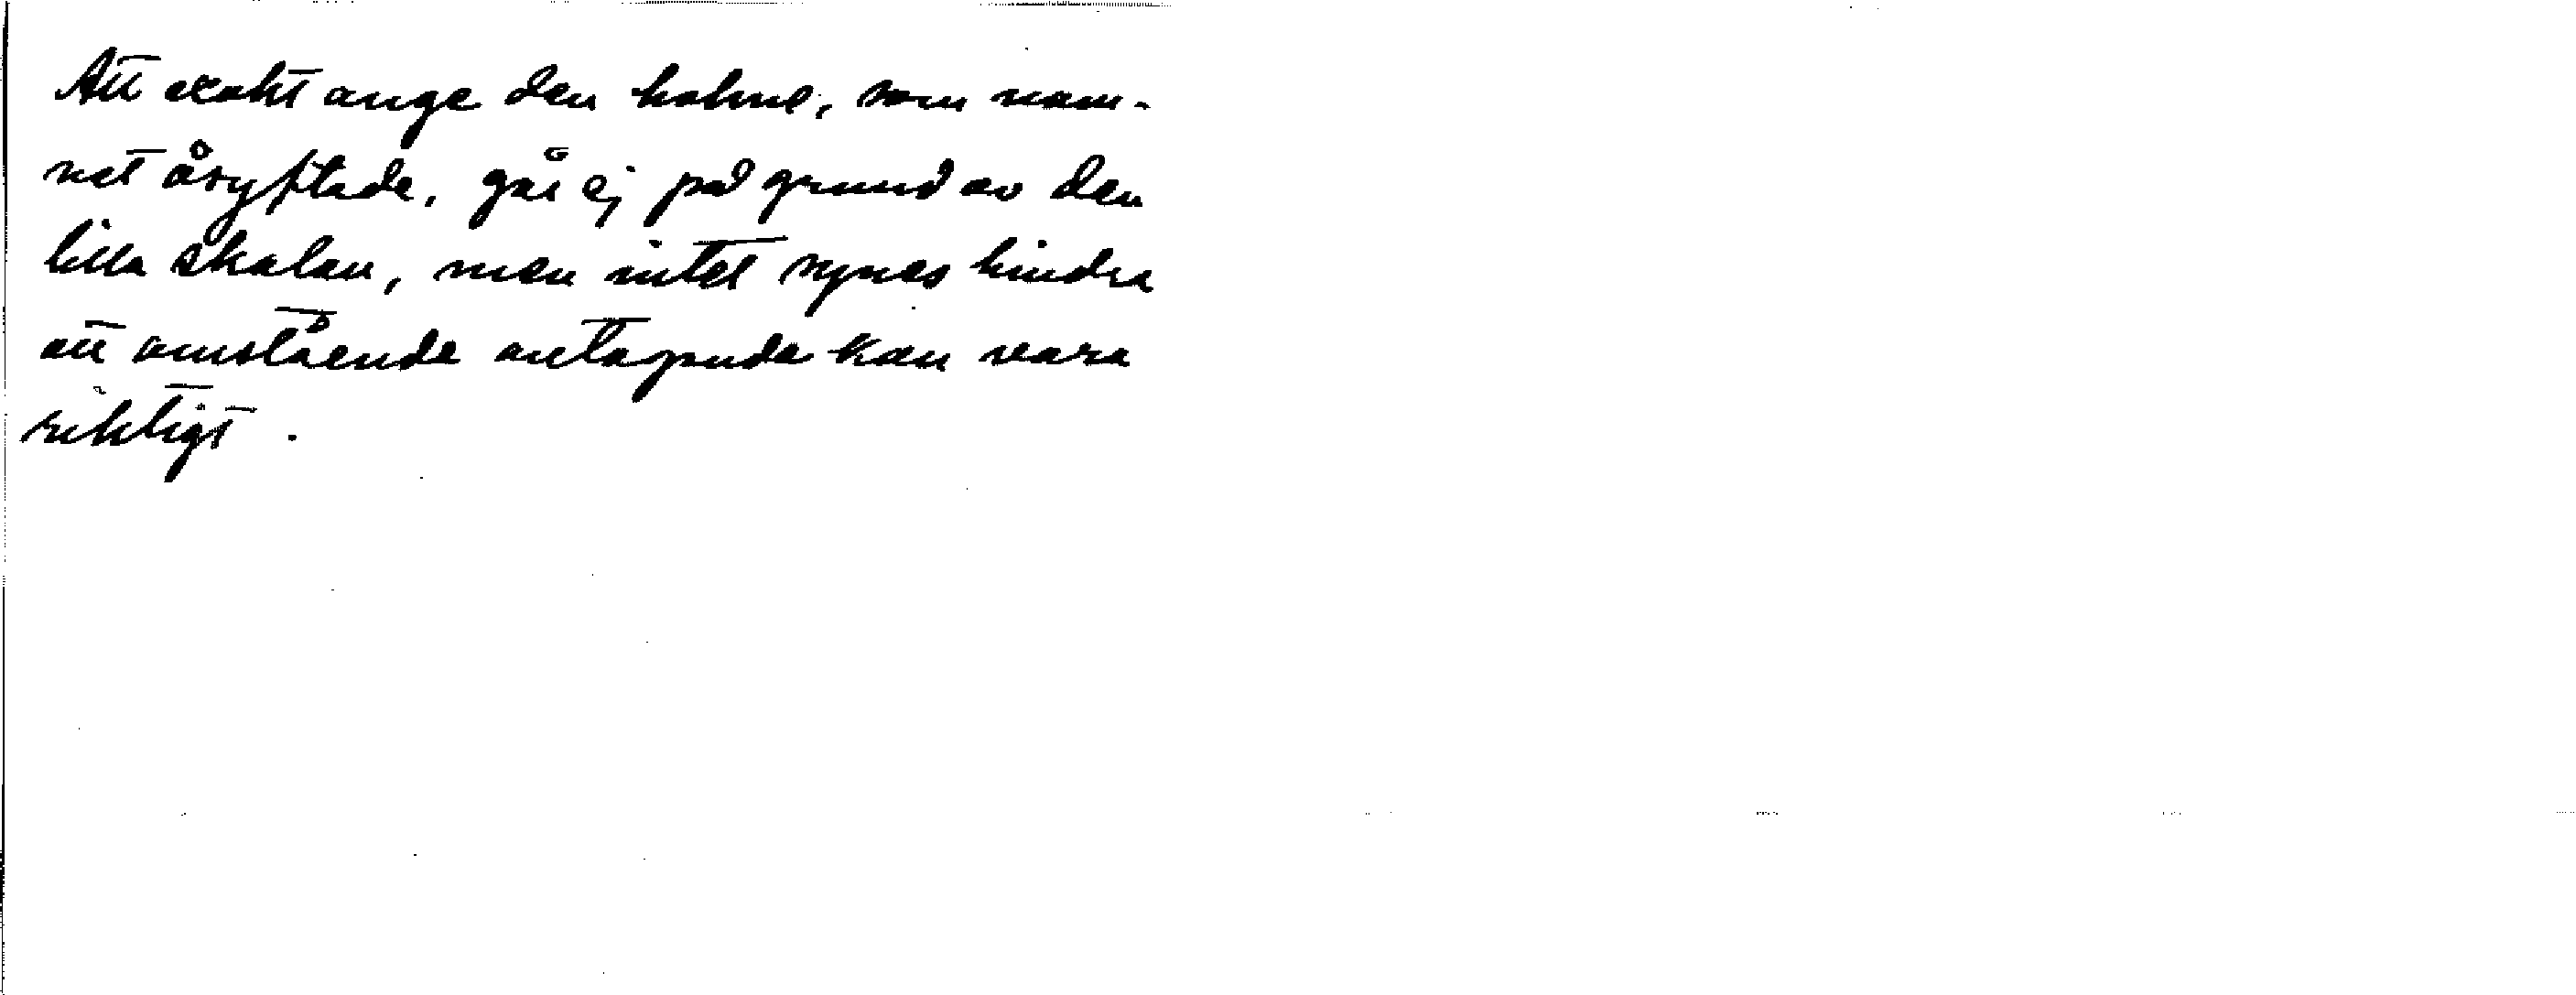 Att exakt ange den holme, som nam-
net åsyftade, går ej på grund av den
lilla skalan, men intet synes hindra
att omstående antagande kan vara
riktigt.